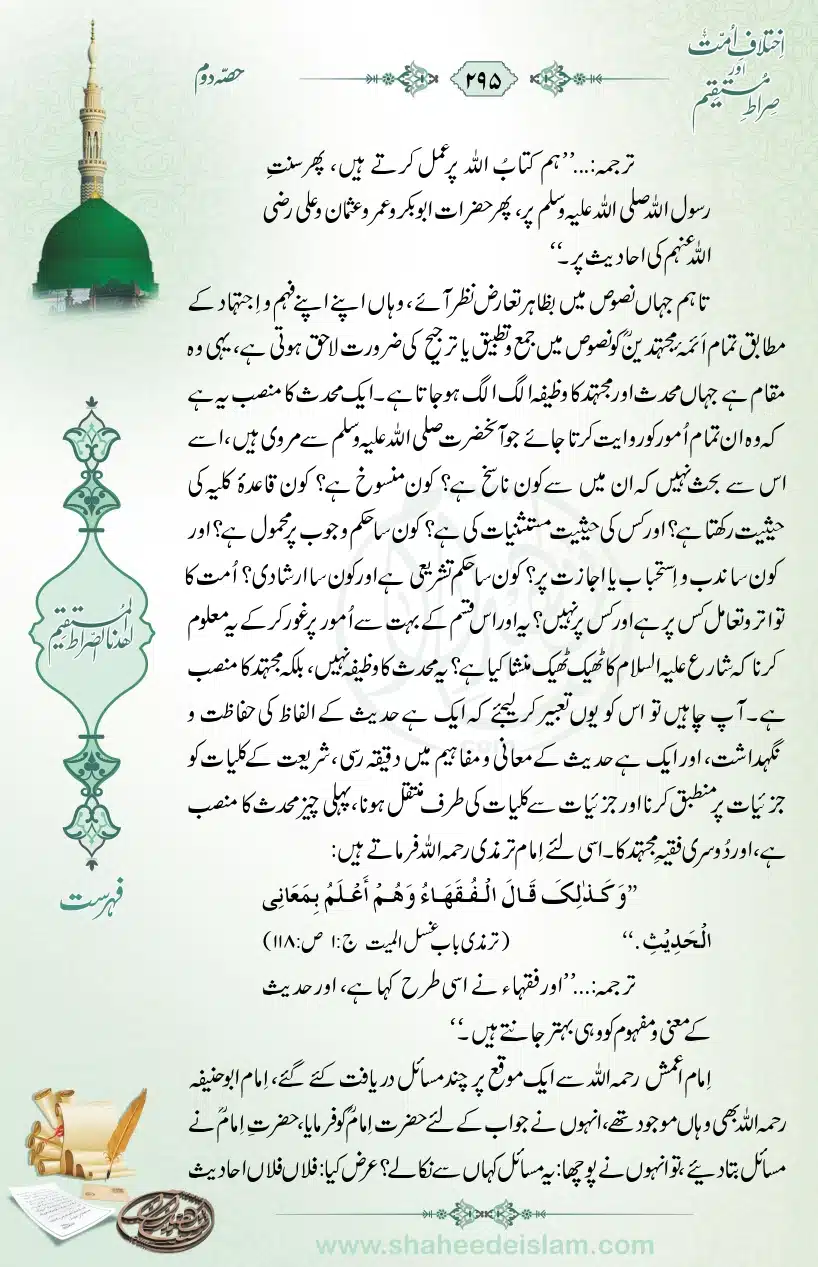 اِختلافِ اُمّت
اور
صِراطِ مُستقیم
۲۹۵
حصّہ دوم
ترجمہ:...’’ہم کتابُ اللہ پر عمل کرتے ہیں، پھر سنتِ
رسول اللہ صلی اللہ علیہ وسلم پر، پھر حضرات ابوبکر و عمر و عثمان و علی رضی
اللہ عنہم کی احادیث پر۔‘‘
تاہم جہاں نصوص میں بظاہر تعارض نظر آئے، وہاں اپنے اپنے فہم و اِجتہاد کے
مطابق تمام اَئمہٴ مجتہدینؒ کو نصوص میں جمع و تطبیق یا ترجیح کی ضرورت لاحق ہوتی ہے، یہی وہ
مقام ہے جہاں محدث اور مجتہد کا وظیفہ الگ الگ ہوجاتا ہے۔ ایک محدث کا منصب یہ ہے
کہ وہ ان تمام اُمور کو روایت کرتا جائے جو آنحضرت صلی اللہ علیہ وسلم سے مروی ہیں، اسے
اس سے بحث نہیں کہ ان میں سے کون ناسخ ہے؟ کون منسوخ ہے؟ کون قاعدہٴ کلیہ کی
حیثیت رکھتا ہے؟ اور کس کی حیثیت مستثنیات کی ہے؟ کون سا حکم وجوب پر محمول ہے؟ اور
کون سا ندب و اِستحباب یا اجازت پر؟ کون سا حکم تشریعی ہے اور کون سا ارشادی؟ اُمت کا
تواتر و تعامل کس پر ہے اور کس پر نہیں؟ یہ اور اس قسم کے بہت سے اُمور پر غور کرکے یہ معلوم
کرنا کہ شارع علیہ السلام کا ٹھیک ٹھیک منشا کیا ہے؟ یہ محدث کا وظیفہ نہیں، بلکہ مجتہد کا منصب
ہے۔ آپ چاہیں تو اس کو یوں تعبیر کرلیجئے کہ ایک ہے حدیث کے الفاظ کی حفاظت و
نگہداشت، اور ایک ہے حدیث کے معانی و مفاہیم میں دقیقہ رسی، شریعت کے کلیات کو
جزئیات پر منطبق کرنا اور جزئیات سے کلیات کی طرف منتقل ہونا، پہلی چیز محدث کا منصب
ہے، اور دُوسری فقیہِ مجتہد کا۔ اسی لئے اِمام ترمذی رحمہ اللہ فرماتے ہیں:
’’وَکَـذٰلِکَ قَـالَ الْـفُـقَهَـاءُ وَهُـمْ أَعْـلَمُ بِمَعَانِی
الْحَدِیْثِ.‘‘ (ترمذی باب غسل المیت ج:۱ ص:۱۱۸)
ترجمہ:...’’اور فقہاء نے اسی طرح کہا ہے، اور حدیث
کے معنی و مفہوم کو وہی بہتر جانتے ہیں۔‘‘
اِمام اعمش رحمہ اللہ سے ایک موقع پر چند مسائل دریافت کئے گئے، اِمام ابوحنیفہ
رحمہ اللہ بھی وہاں موجود تھے، انہوں نے جواب کے لئے حضرت اِمامؒ کو فرمایا، حضرتِ اِمامؒ نے
مسائل بتادیئے، تو انہوں نے پوچھا: یہ مسائل کہاں سے نکالے؟ عرض کیا: فلاں فلاں احادیث
اهدنا الصراط المستقیم
فہرست
www.shaheedeislam.com